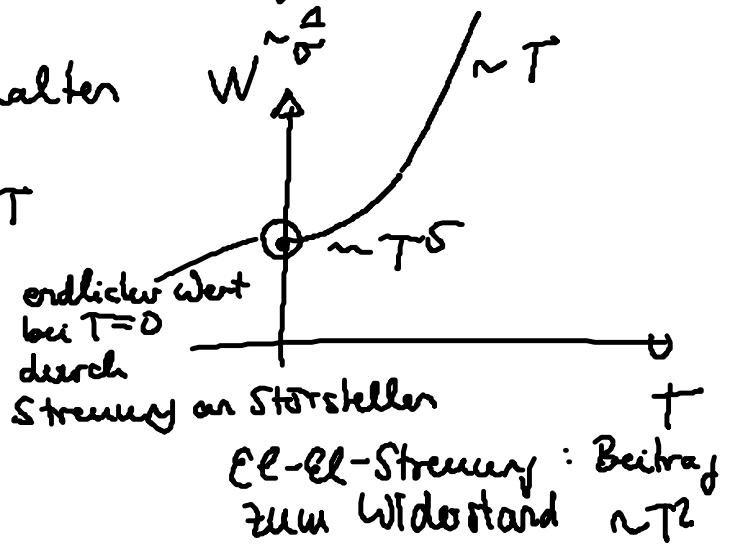 W ~ 1/σ
~ T
alten
T
~ T⁵
endlicher Wert
bei T=0
durch
Streuung an Störstellen
T
El-El-Streuung : Beitrag
zum Widerstand ~T²